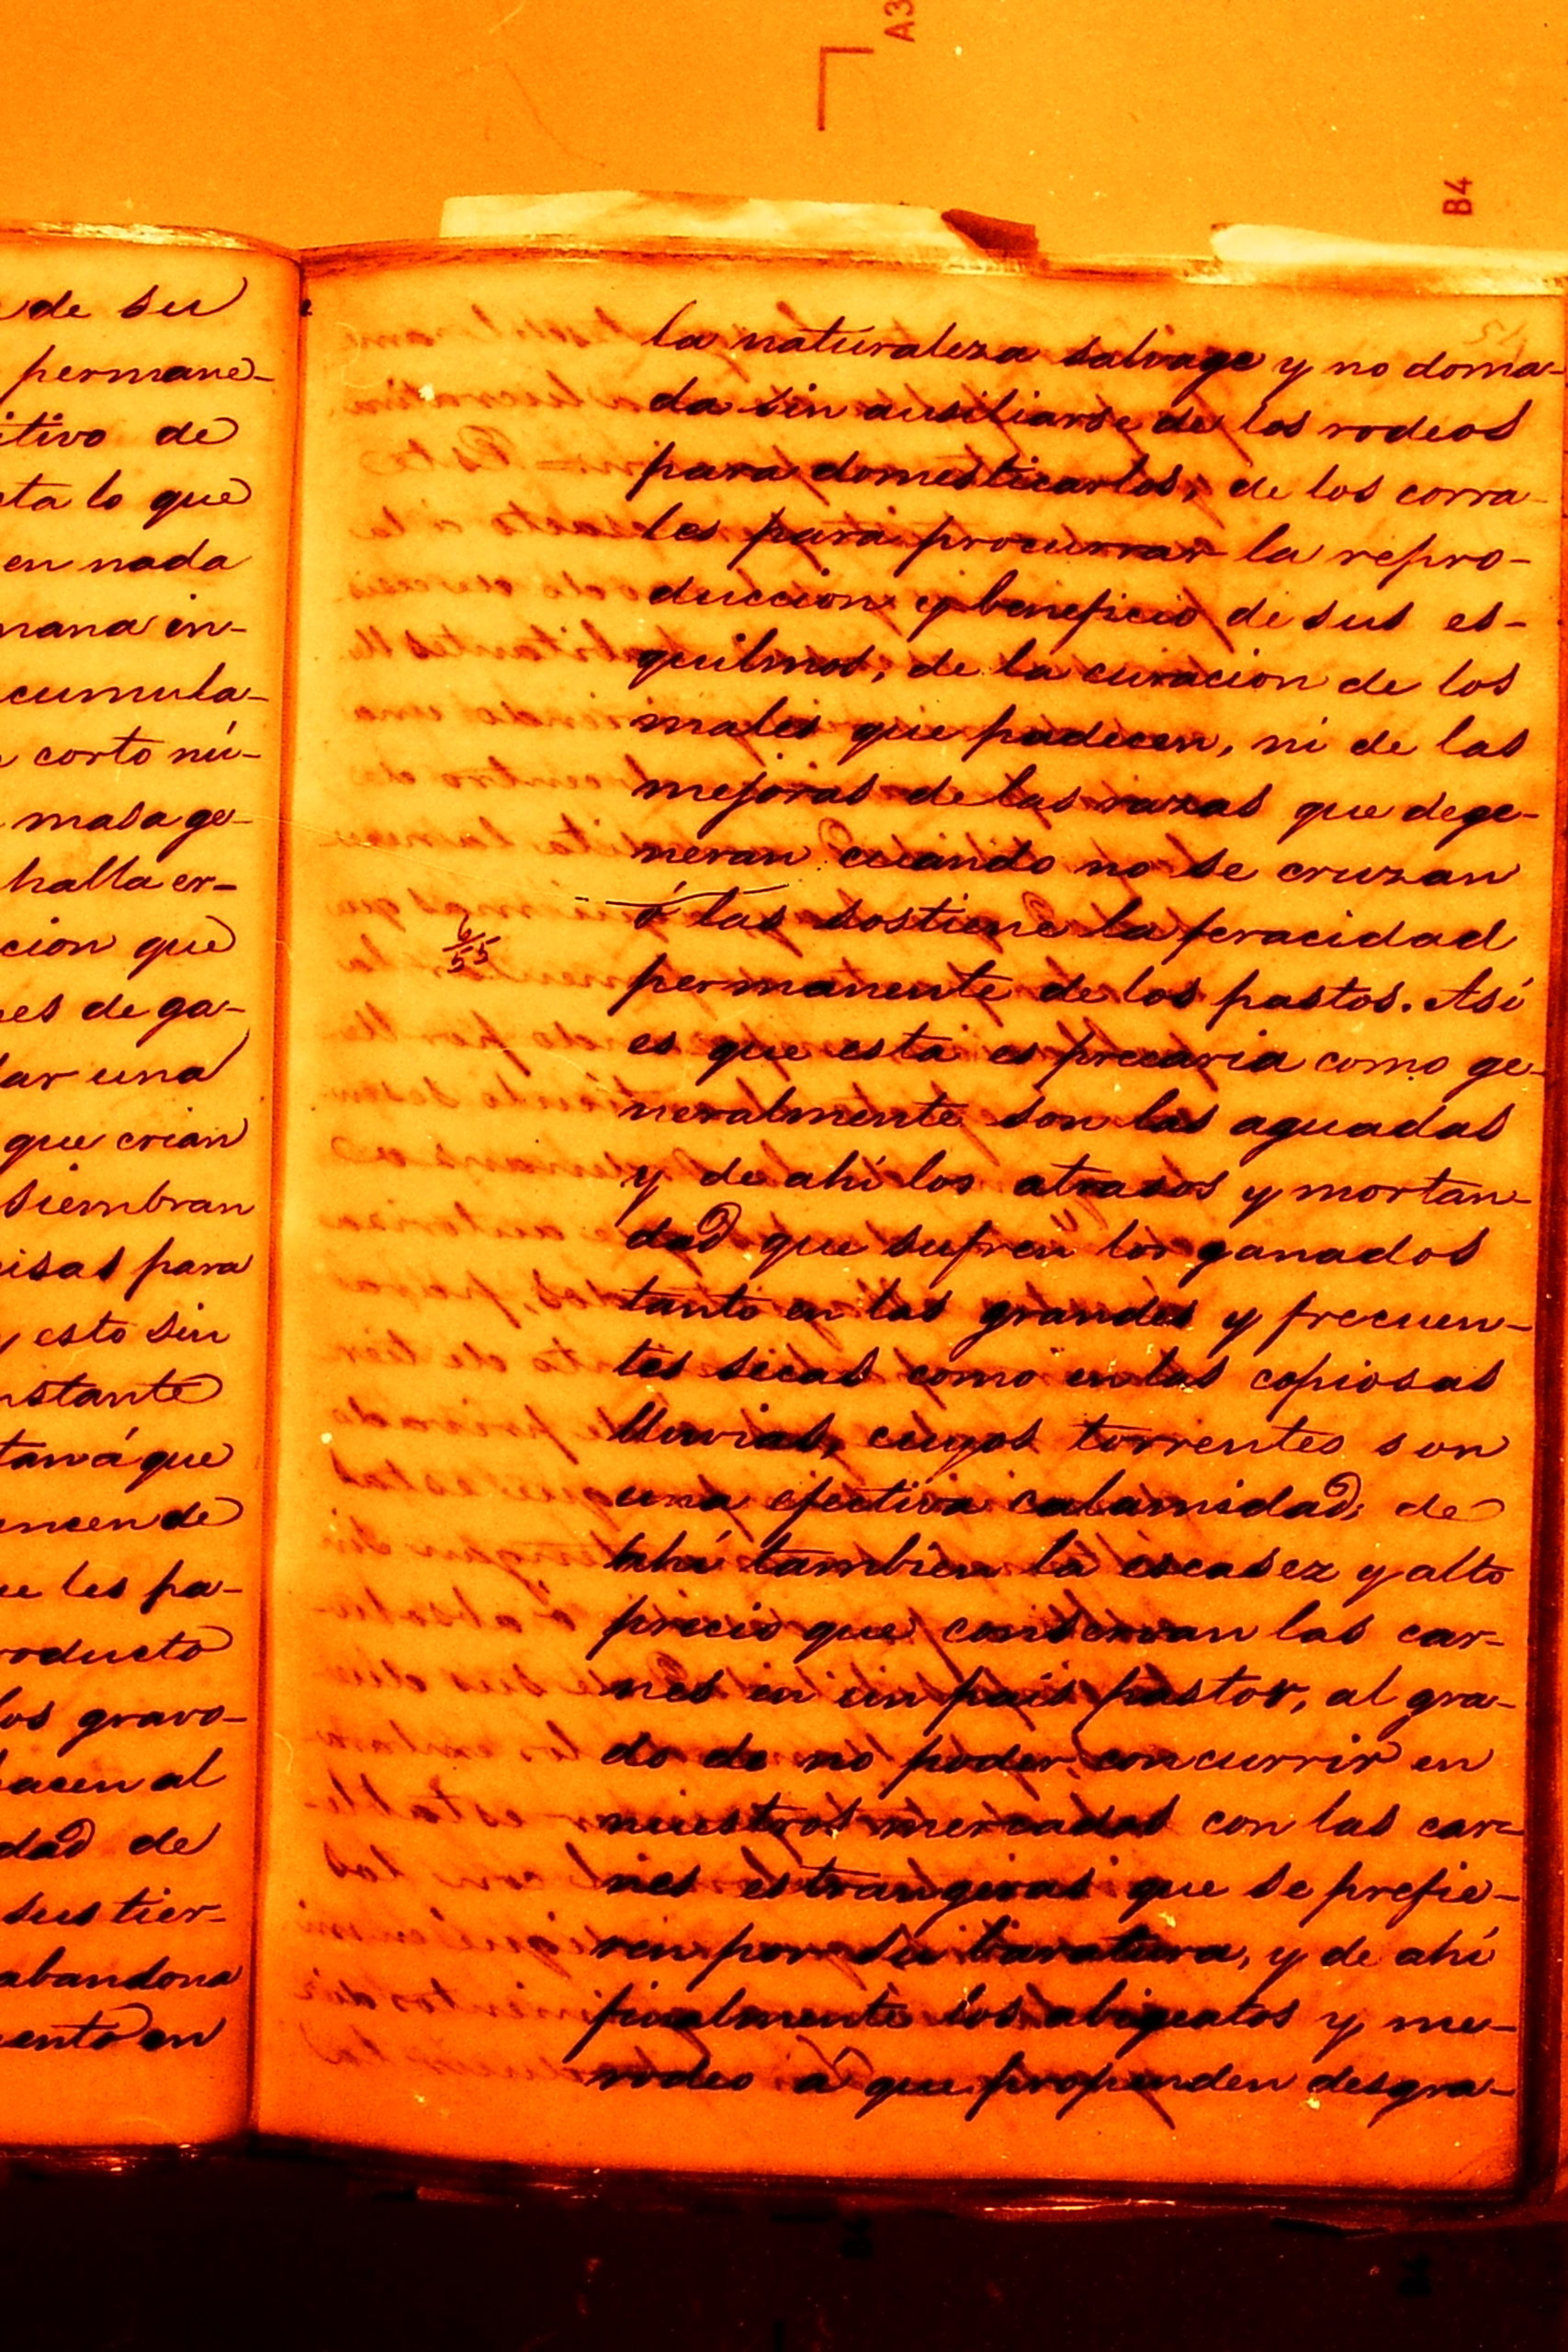 A3
B4
de su
permane-
itivo de
ta lo que
en nada
mana in-
cumula-
corto nú-
masa ge-
halla er-
cion que
es de ga-
lar una
que crian
siembran
isas para
y esto sin
nstante
tan á que
encen de
ue les pa-
roducto
los gravo-
hacen al
dad de
sus tier-
abandona
ento en
la naturaleza salvage y no doma-
da sin ausiliarse de los rodeos
para domesticarlos, de los corra-
les para procurrar la repro-
duccion y beneficio de sus es-
quilmos, de la curacion de los
males que padecen, ni de las
mejoras de las razas que dege-
neran cuando no se cruzan
ó las sostiene la feracidad
6/55
permanente de los pastos. Asi
es que esta es precaria como ge-
neralmente son las aguadas
y de ahí los atrasos y mortan-
dad que sufren los ganados
tanto en las grandes y frecuen-
tes secas como en las copiosas
lluvias, cuyos torrentes son
una efectiva calamidad; de
ahí tambien la escasez y alto
precio que conservan las car-
nes en un pais pastor, al gra-
do de no poder concurrir en
nuestros mercados con las car-
nes estrangeras que se prefie-
ren por su baratura, y de ahí
finalmente los abigeatos y me-
rodeo á que propenden desgra-